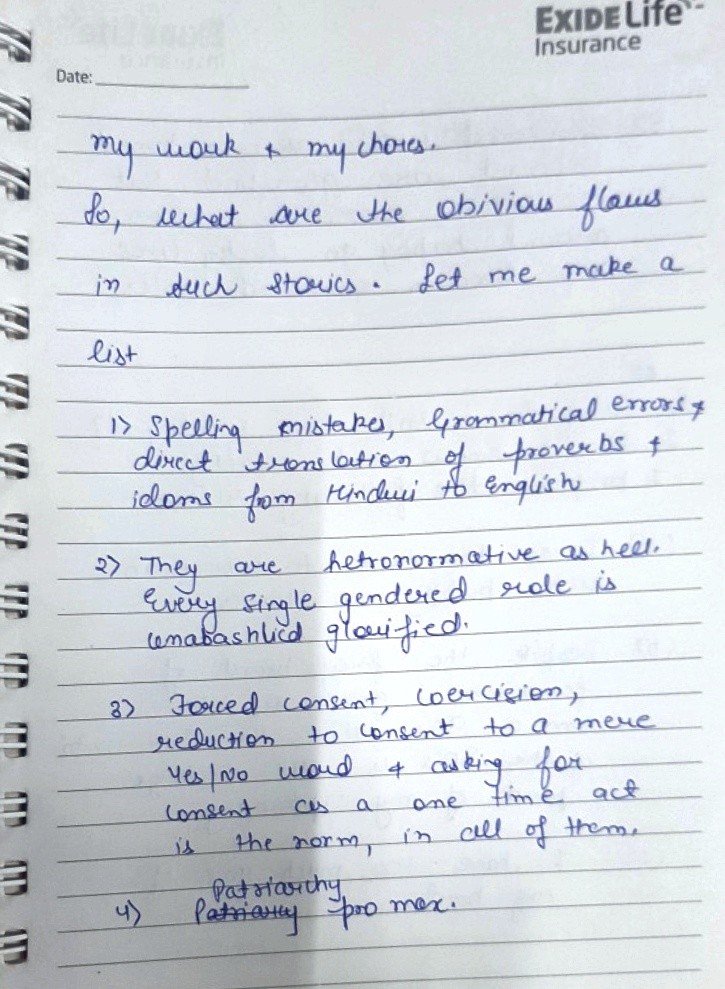 EXIDE Life
Insurance
Date:
my work & my chores.
So, what are the obivious flaws
in such stories. Let me make a
list
1) Spelling mistakes, Grammatical errors &
direct translation of proverbs &
idoms from Hindui to English
2) They are hetronormative as hell.
Every single gendered role is
unabashlied glorified.
3) Forced consent, coercision,
reduction to consent to a mere
Yes/No word & asking for
consent as a one time act
is the norm, in all of them.
Patriarchy
4) Patriarcy pro max.